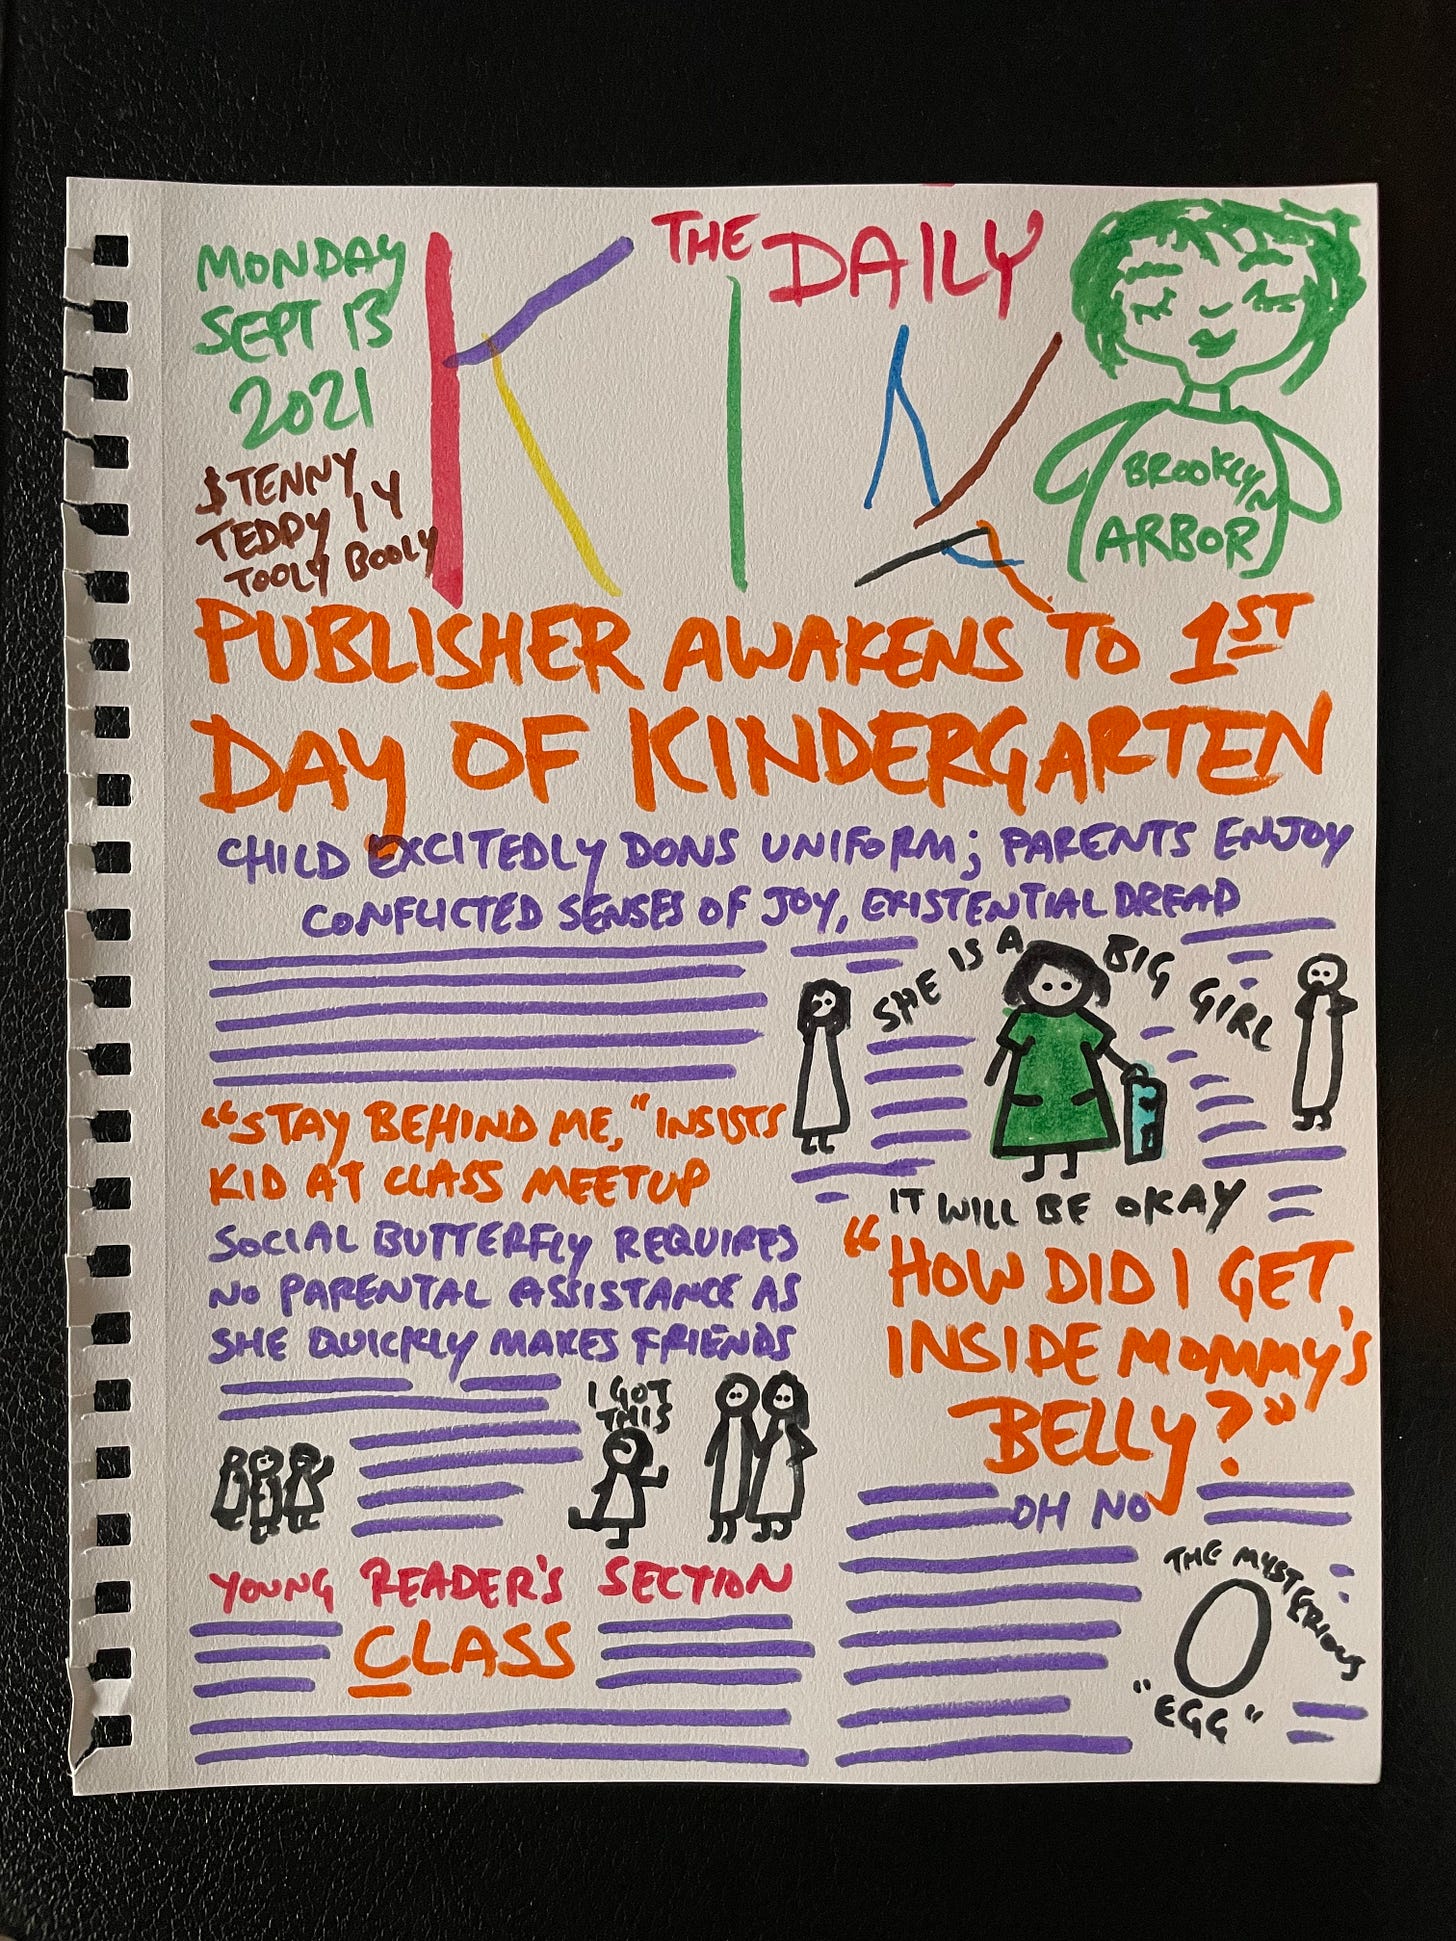 MONDAY
SEPT 13
2021
$TENNY
TEDDY 14
TOOLY BOOLY
THE DAILY
KID
BROOKLYN
ARBOR
PUBLISHER AWAKENS TO 1ST
DAY OF KINDERGARTEN
CHILD EXCITEDLY DONS UNIFORM; PARENTS ENJOY
CONFLICTED SENSES OF JOY, EXISTENTIAL DREAD
SHE IS A BIG GIRL
IT WILL BE OKAY
"STAY BEHIND ME," INSISTS
KID AT CLASS MEETUP
SOCIAL BUTTERFLY REQUIRES
NO PARENTAL ASSISTANCE AS
SHE QUICKLY MAKES FRIENDS
I GOT
THIS
YOUNG READER'S SECTION
CLASS
"HOW DID I GET
INSIDE MOMMY'S
BELLY?"
OH NO
THE MYSTERIOUS
"EGG"